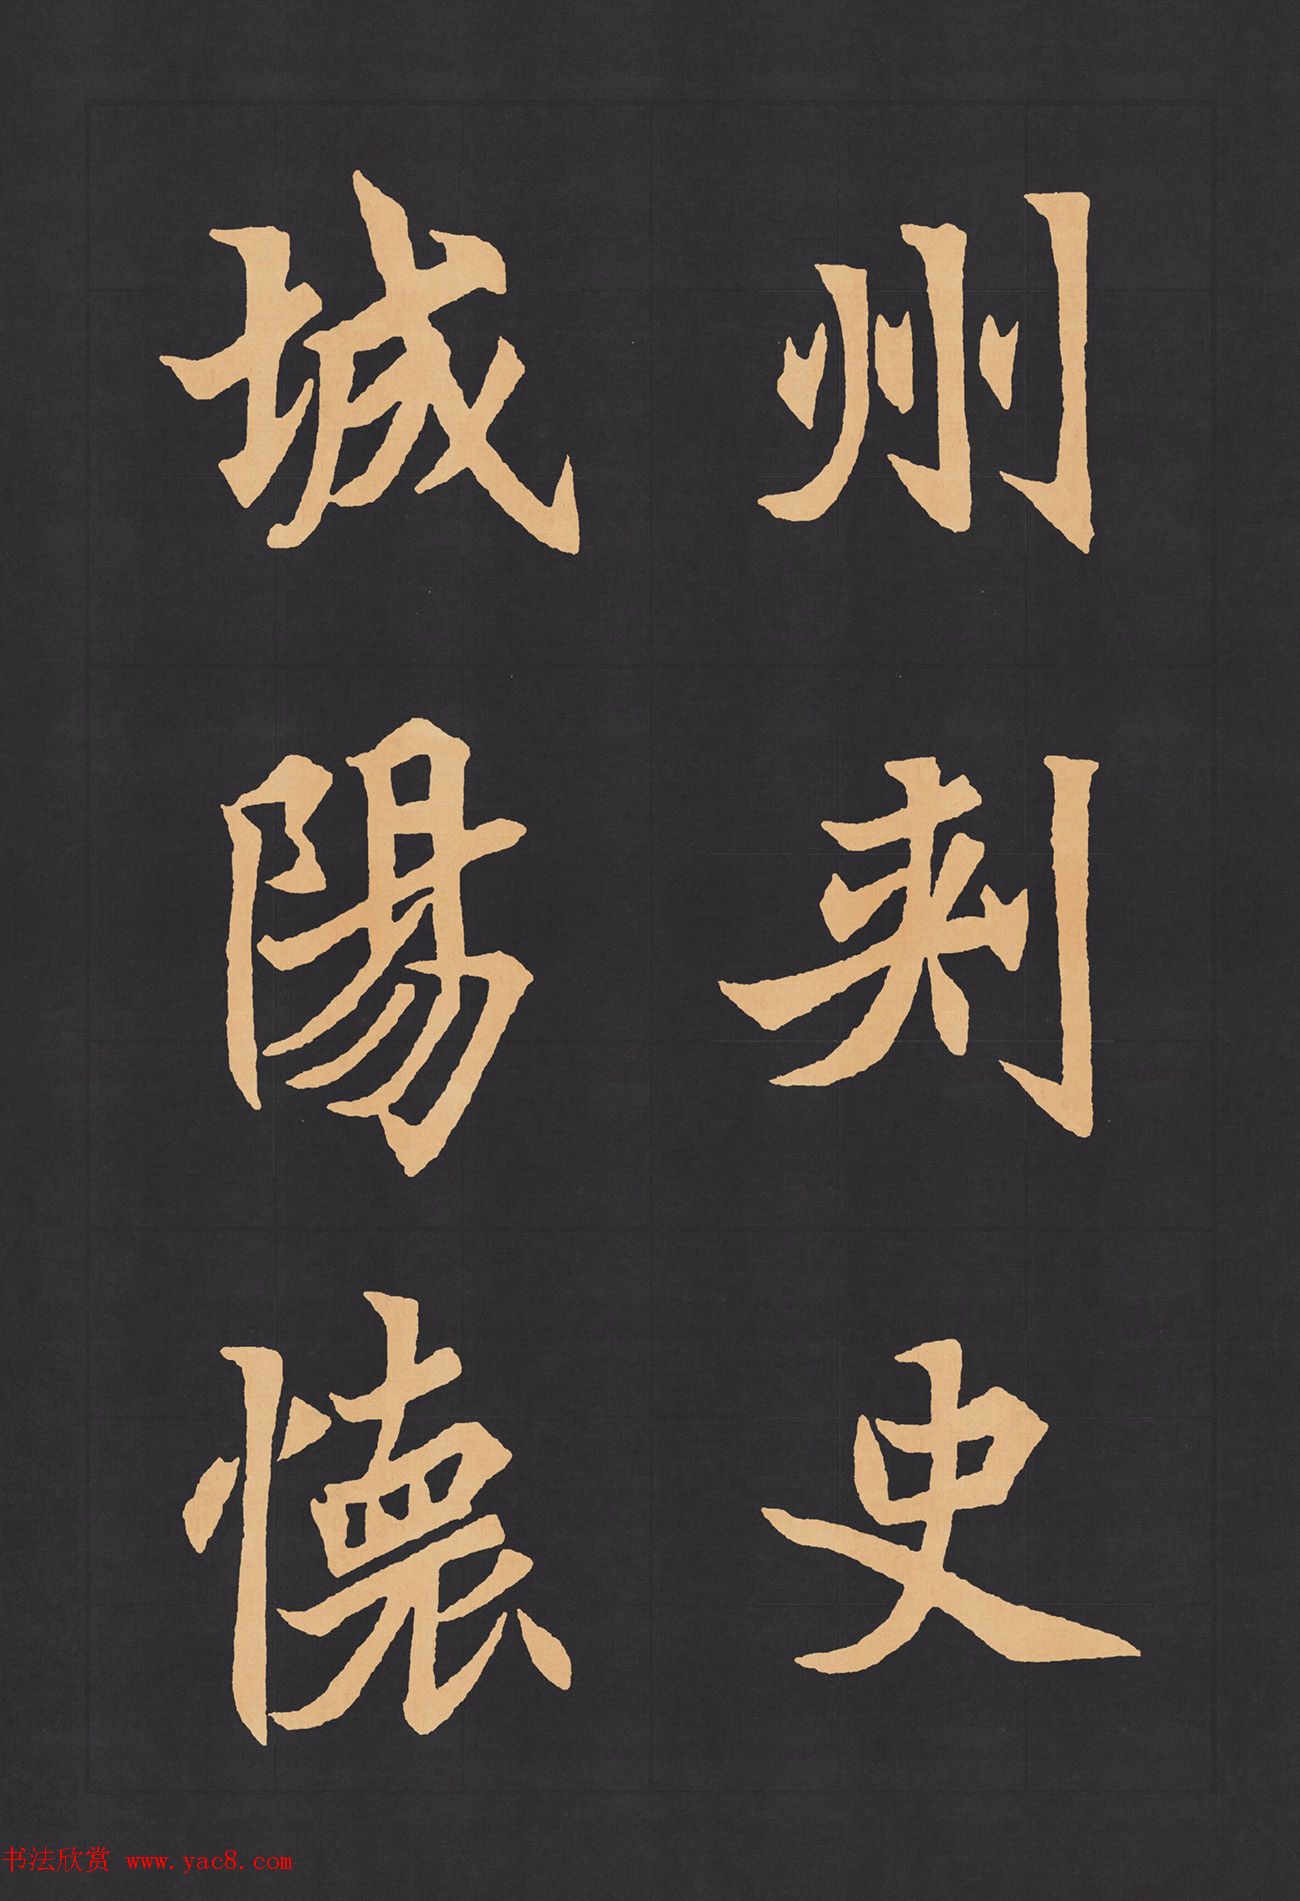 州刺史
城陽懷
书法欣赏 www.yac8.com